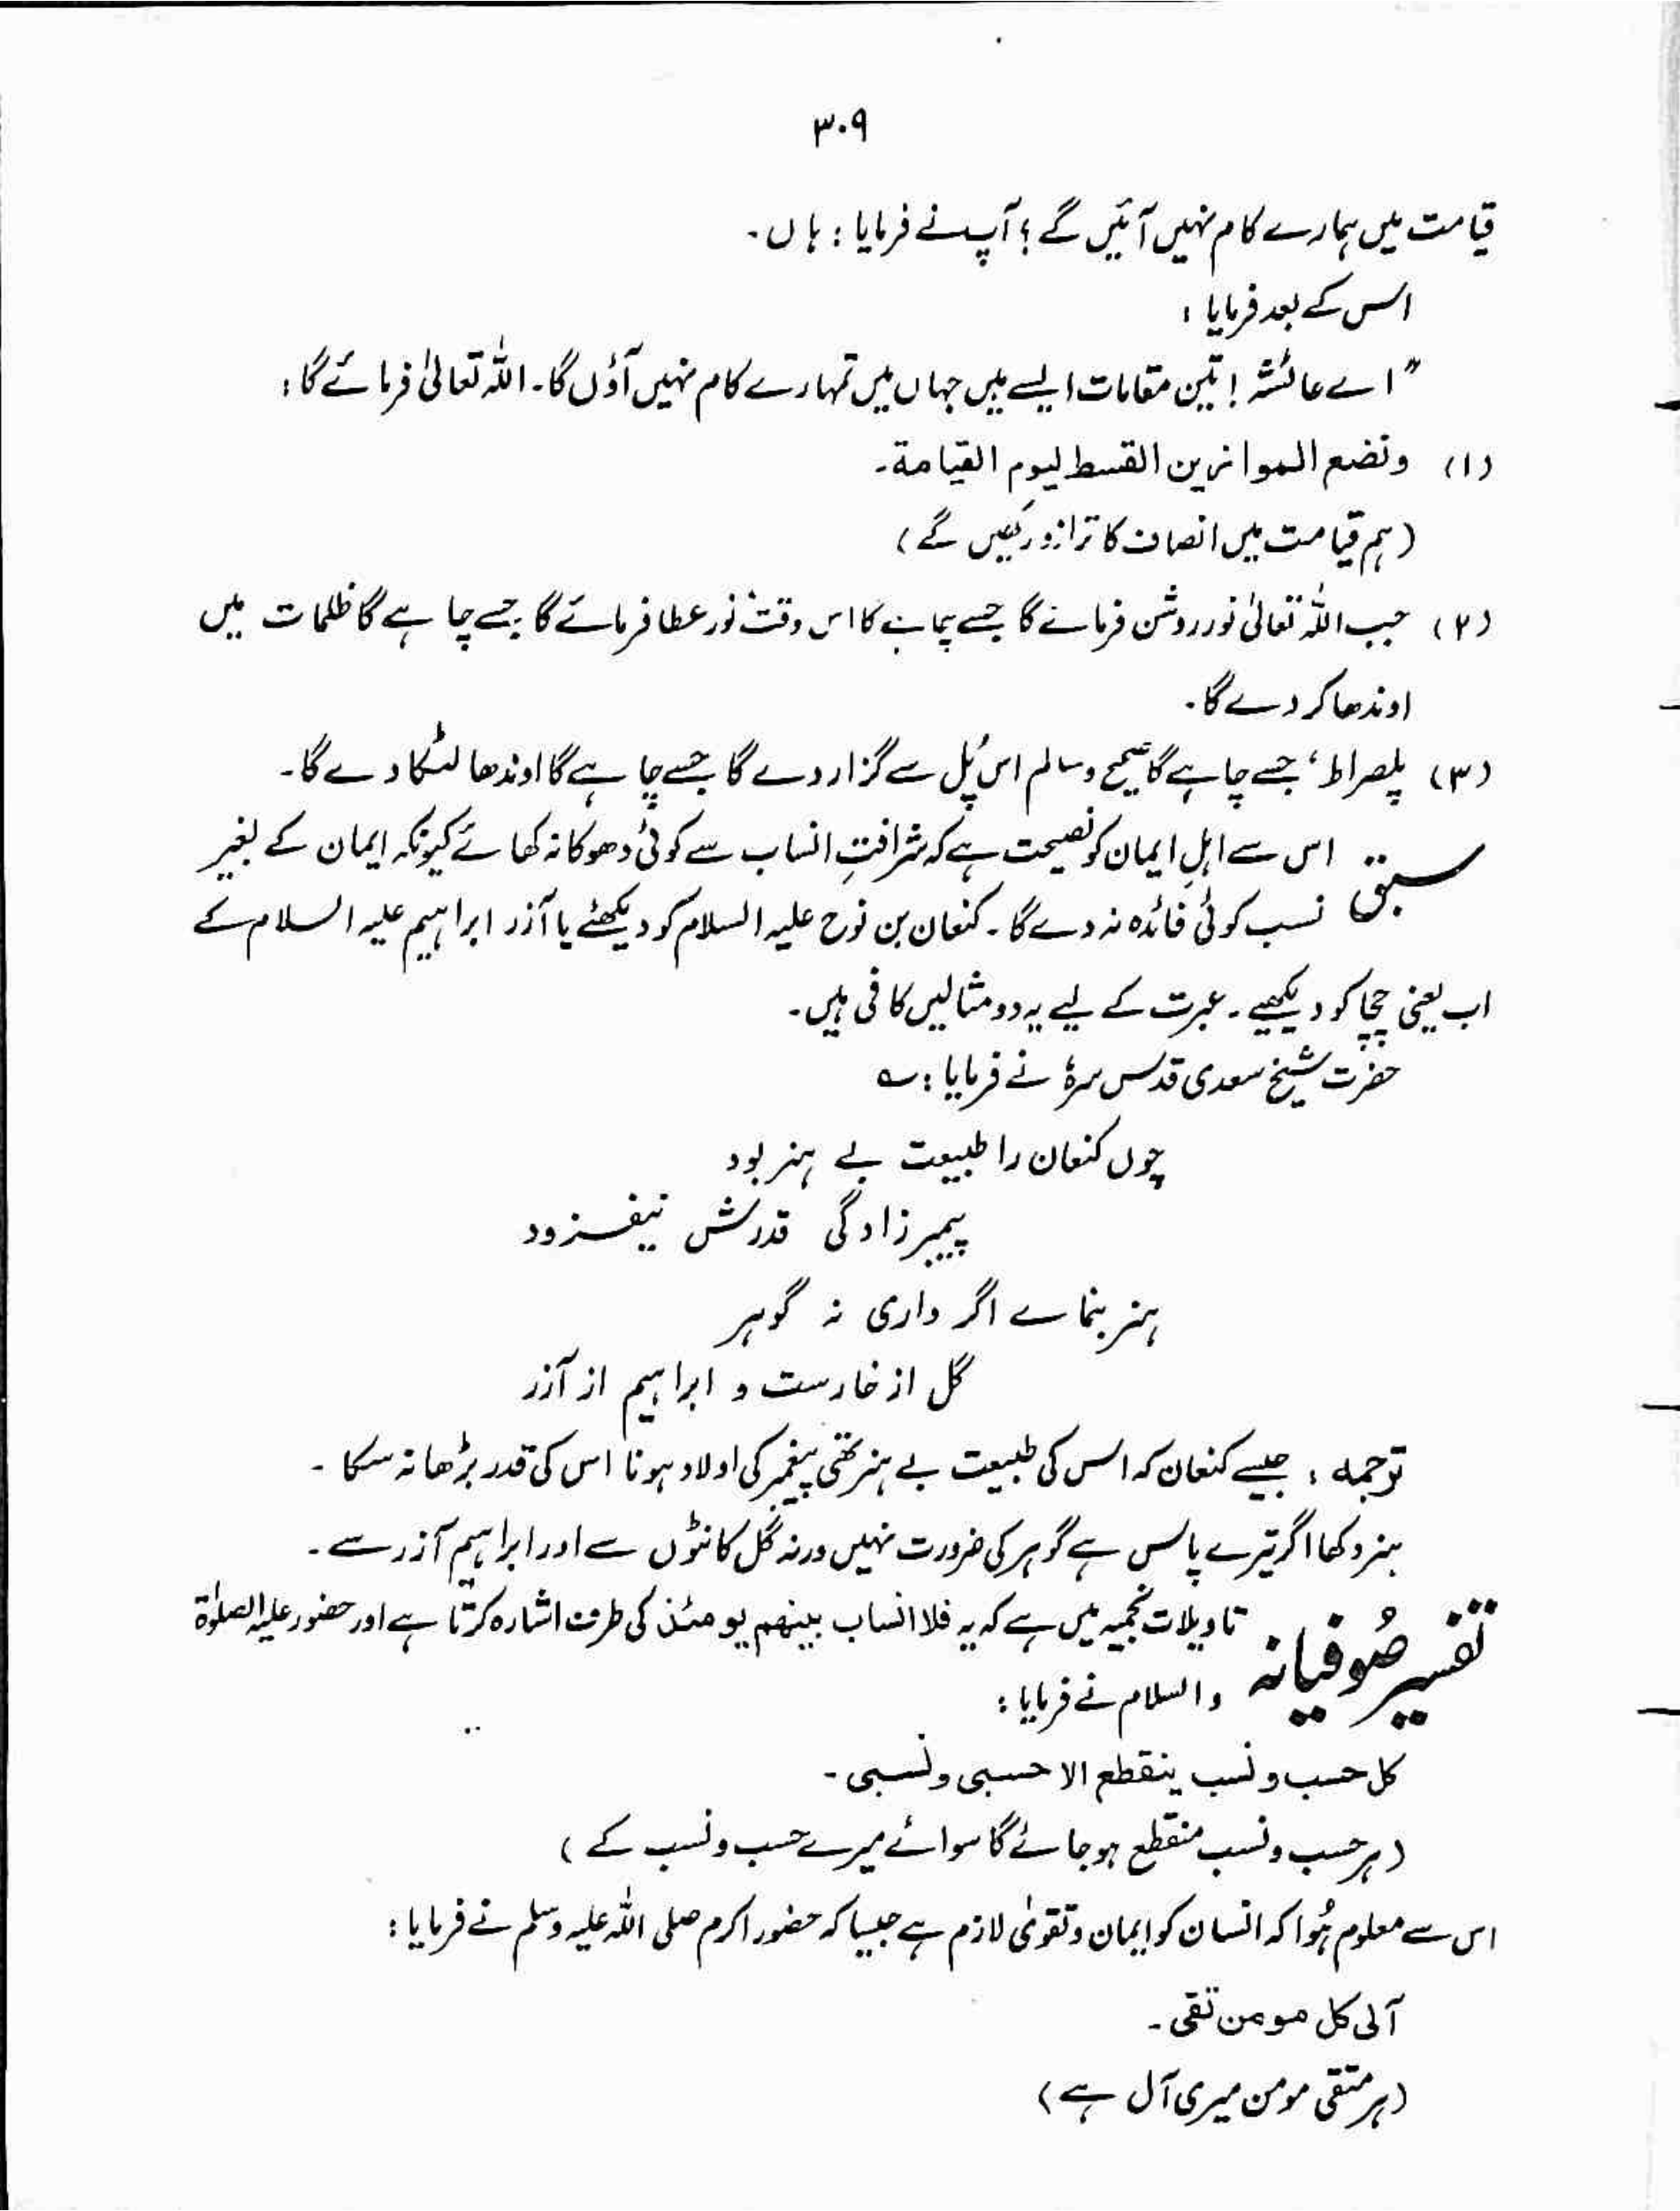 ۳۰۹
قیامت میں ہمارے کام نہیں آئیں گے؟ آپ نے فرمایا: ہاں۔
اس کے بعد فرمایا:
"اے عائشہ! تین مقامات ایسے ہیں جہاں میں تمہارے کام نہیں آؤں گا۔ اللہ تعالیٰ فرمائے گا:
(۱) ونضع الموازین القسط لیوم القیامۃ۔
(ہم قیامت میں انصاف کا ترازو رکھیں گے)
(۲) جب اللہ تعالیٰ نور روشن فرمائے گا جسے چاہے گا اس وقت نور عطا فرمائے گا جسے چاہے گا ظلمات میں
اوندھا کر دے گا۔
(۳) پلصراط، جسے چاہے گا صحیح و سالم اس پُل سے گزار دے گا جسے چاہے گا اوندھا لٹکا دے گا۔
سبق اس سے اہلِ ایمان کو نصیحت ہے کہ شرافتِ انساب سے کوئی دھوکا نہ کھائے کیونکہ ایمان کے بغیر
نسب کوئی فائدہ نہ دے گا۔ کنعان بن نوح علیہ السلام کو دیکھئے یا آزر ابراہیم علیہ السلام کے
اب یعنی چچا کو دیکھیے۔ عبرت کے لیے یہ دو مثالیں کافی ہیں۔
حضرت شیخ سعدی قدس سرہٗ نے فرمایا: ؎
چوں کنعان را طبیعت بے ہنر بود
پیمبر زادگی قدرش نیفزود
ہنر بنمائے اگر داری نہ گوہر
گل از خارست و ابراہیم از آزر
ترجمہ: جیسے کنعان کہ اس کی طبیعت بے ہنر تھی پیغمبر کی اولاد ہونا اس کی قدر بڑھا نہ سکا۔
ہنر دکھا اگر تیرے پاس ہے گوہر کی ضرورت نہیں ورنہ گل کانٹوں سے اور ابراہیم آزر سے۔
تفسیر صُوفیانہ تاویلات نجمیہ میں ہے کہ یہ فلا انساب بینھم یومئذ کی طرف اشارہ کرتا ہے اور حضور علیہ الصلوٰۃ
والسلام نے فرمایا:
کل حسب و نسب ینقطع الا حسبی ونسبی۔
(ہر حسب و نسب منقطع ہوجائے گا سوائے میرے حسب و نسب کے)
اس سے معلوم ہُوا کہ انسان کو ایمان و تقویٰ لازم ہے جیسا کہ حضور اکرم صلی اللہ علیہ وسلم نے فرمایا:
آلی کل مومن تقی۔
(ہر متقی مومن میری آل ہے)